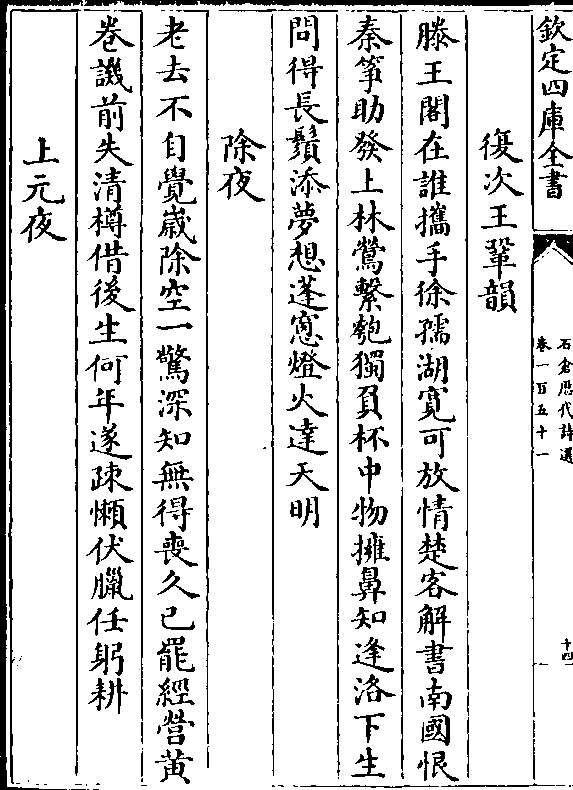 欽定四庫全書
石倉歴代詩選
卷一百五十一
十四
復次王鞏韻
滕王閣在誰攜手徐孺湖寛可放情楚客解書南國恨
秦箏助發上林鶯繫匏獨負杯中物擁鼻知逢洛下生
問得長鬚添夢想蓬窻燈火達天明
除夜
老去不自覺歲除空一驚深知無得喪久已罷經營黄
卷譏前失清樽借後生何年遂疎懶伏臘任躬耕
上元夜